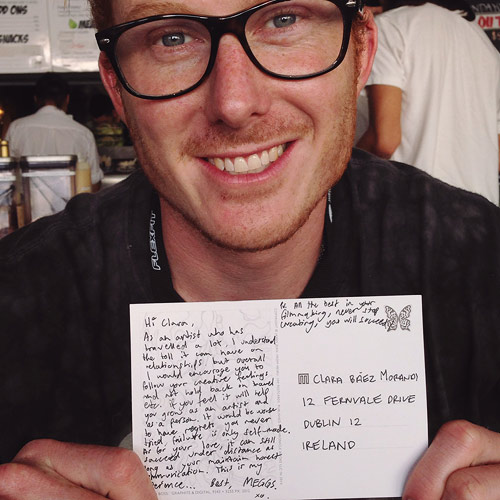 DD ONS
SNACKS
FLEXFIT
Hi Clara,
As an artist who has
travelled a lot, I understand
the toll it can have on
relationships, but overall
I would encourage you to
follow your creative feelings
and not hold back on travel
etc. if you feel it will help
you grow as an artist and
as a person. It would be worse
to have regrets, you never
tried. failure is only self made.
As for your love, it can still
succeed under distance as
long as your maintain honest
communication. This is my
Best, MEGGS.
xo
All the best in your
filmmaking, never stop
creating, you will succeed
CLARA BÁEZ MORANDI
12 FERNVALE DRIVE
DUBLIN 12
IRELAND